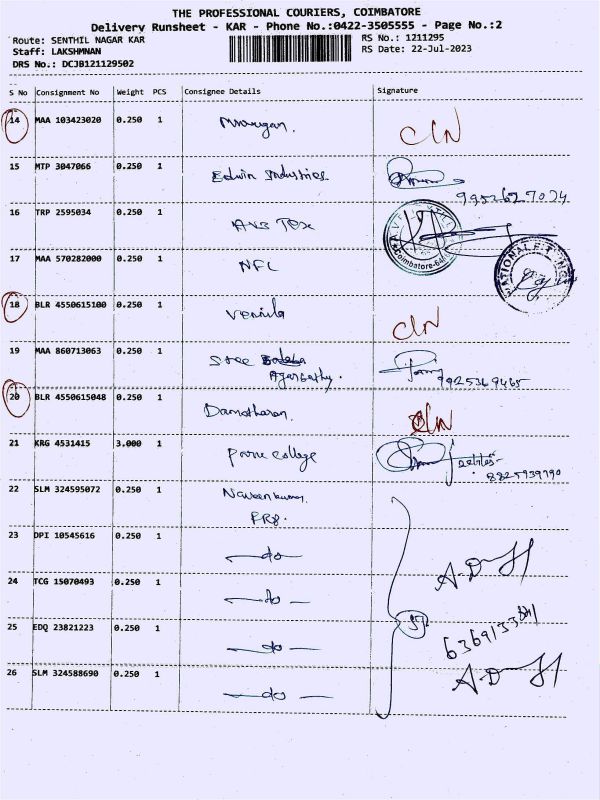 THE PROFESSIONAL COURIERS, COIMBATORE
Delivery Runsheet - KAR - Phone No.:0422-3505555 - Page No.:2
Route: SENTHIL NAGAR KAR RS No.: 1211295
Staff: LAKSHMNAN RS Date: 22-Jul-2023
DRS No.: DCJB121129502
S No Consignment No Weight PCS Consignee Details Signature
14 MAA 103423020 0.250 1 Murugan. CIN
15 MTP 3047066 0.250 1 Edwin Industries 9952627034
16 TRP 2595034 0.250 1 ANS Tex
Coimbatore-641
17 MAA 570282000 0.250 1 NFL
NATIONAL FIT
18 BLR 4550615100 0.250 1 Vennila CIN
19 MAA 860713063 0.250 1 Sree
Agarbathy. 9925369465
20 BLR 4550615048 0.250 1 Damotharan. CIN
21 KRG 4531415 3.000 1 college
8825939790
22 SLM 324595072 0.250 1 Naveen kumar
23 DPI 10545616 0.250 1 -do-
24 TCG 15070493 0.250 1 -do-
25 EDQ 23821223 0.250 1 -do-
26 SLM 324588690 0.250 1 -do-